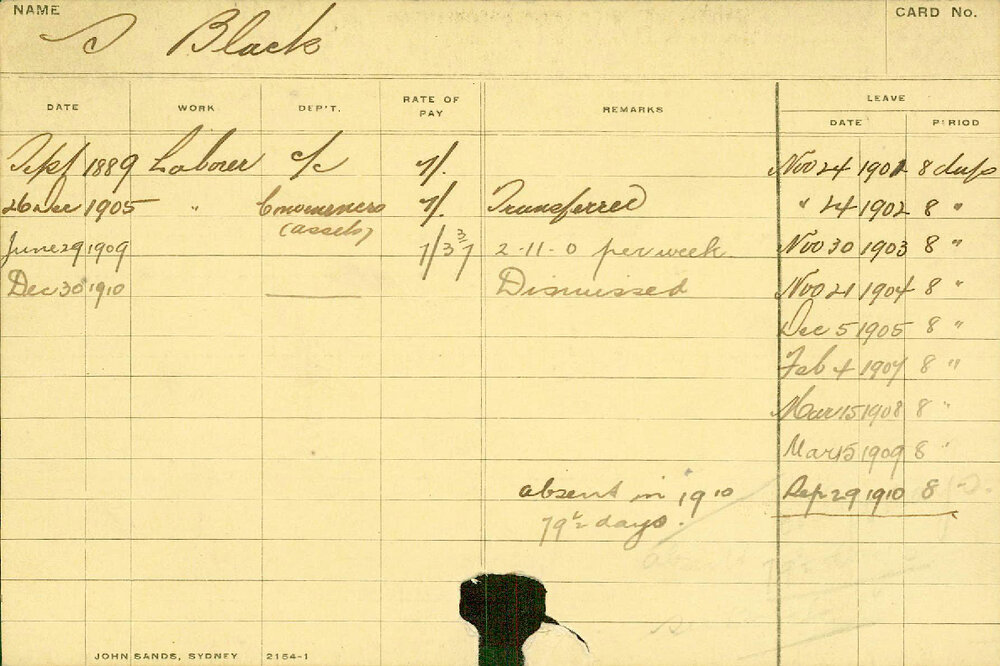 NAME CARD No.
Black
DATE WORK DEP'T. RATE OF PAY REMARKS LEAVE
DATE PERIOD
Sept 1889 Laborer c/c 7/. Nov 24 1901 8 days
26 Dec 1905 " 7/. Transferred " 24 1902 8 "
(assets)
June 29 1909 2-11-0 per week. Nov 30 1903 8 "
Dec 30 1910 Dismissed Nov 21 1904 8 "
Dec 5 1905 8 "
Feb 4 1907 8 "
Mar 15 1908 8 "
Mar 15 1909 8 "
absent in 1910 Sep 29 1910 8
days.
JOHN SANDS, SYDNEY 2154-1